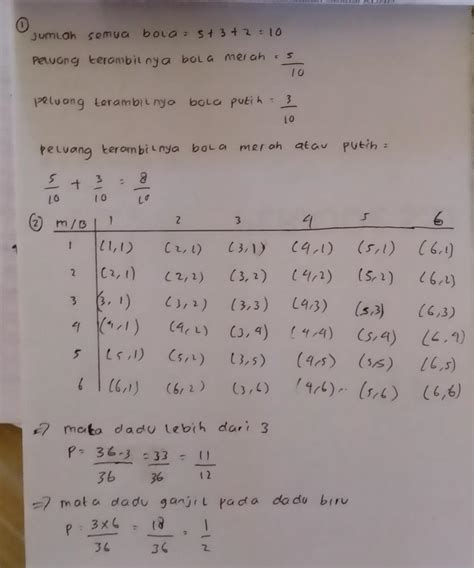 ① Jumlah semua bola = 5 + 3 + 2 = 10
Peluang terambilnya bola merah = 5/10
peluang terambilnya bola putih = 3/10
peluang terambilnya bola merah atau putih =
5/10 + 3/10 = 8/10
② M/B 1 2 3 4 5 6
1 (1,1) (2,1) (3,1) (4,1) (5,1) (6,1)
2 (2,1) (2,2) (3,2) (4,2) (5,2) (6,2)
3 (3,1) (3,2) (3,3) (4,3) (5,3) (6,3)
4 (4,1) (4,2) (3,4) (4,4) (5,4) (6,4)
5 (5,1) (5,2) (3,5) (4,5) (5,5) (6,5)
6 (6,1) (6,2) (3,6) (4,6) (5,6) (6,6)
=> mata dadu lebih dari 3
P = 36-3/36 = 33/36 = 11/12
=> mata dadu ganjil pada dadu biru
P = 3x6/36 = 18/36 = 1/2